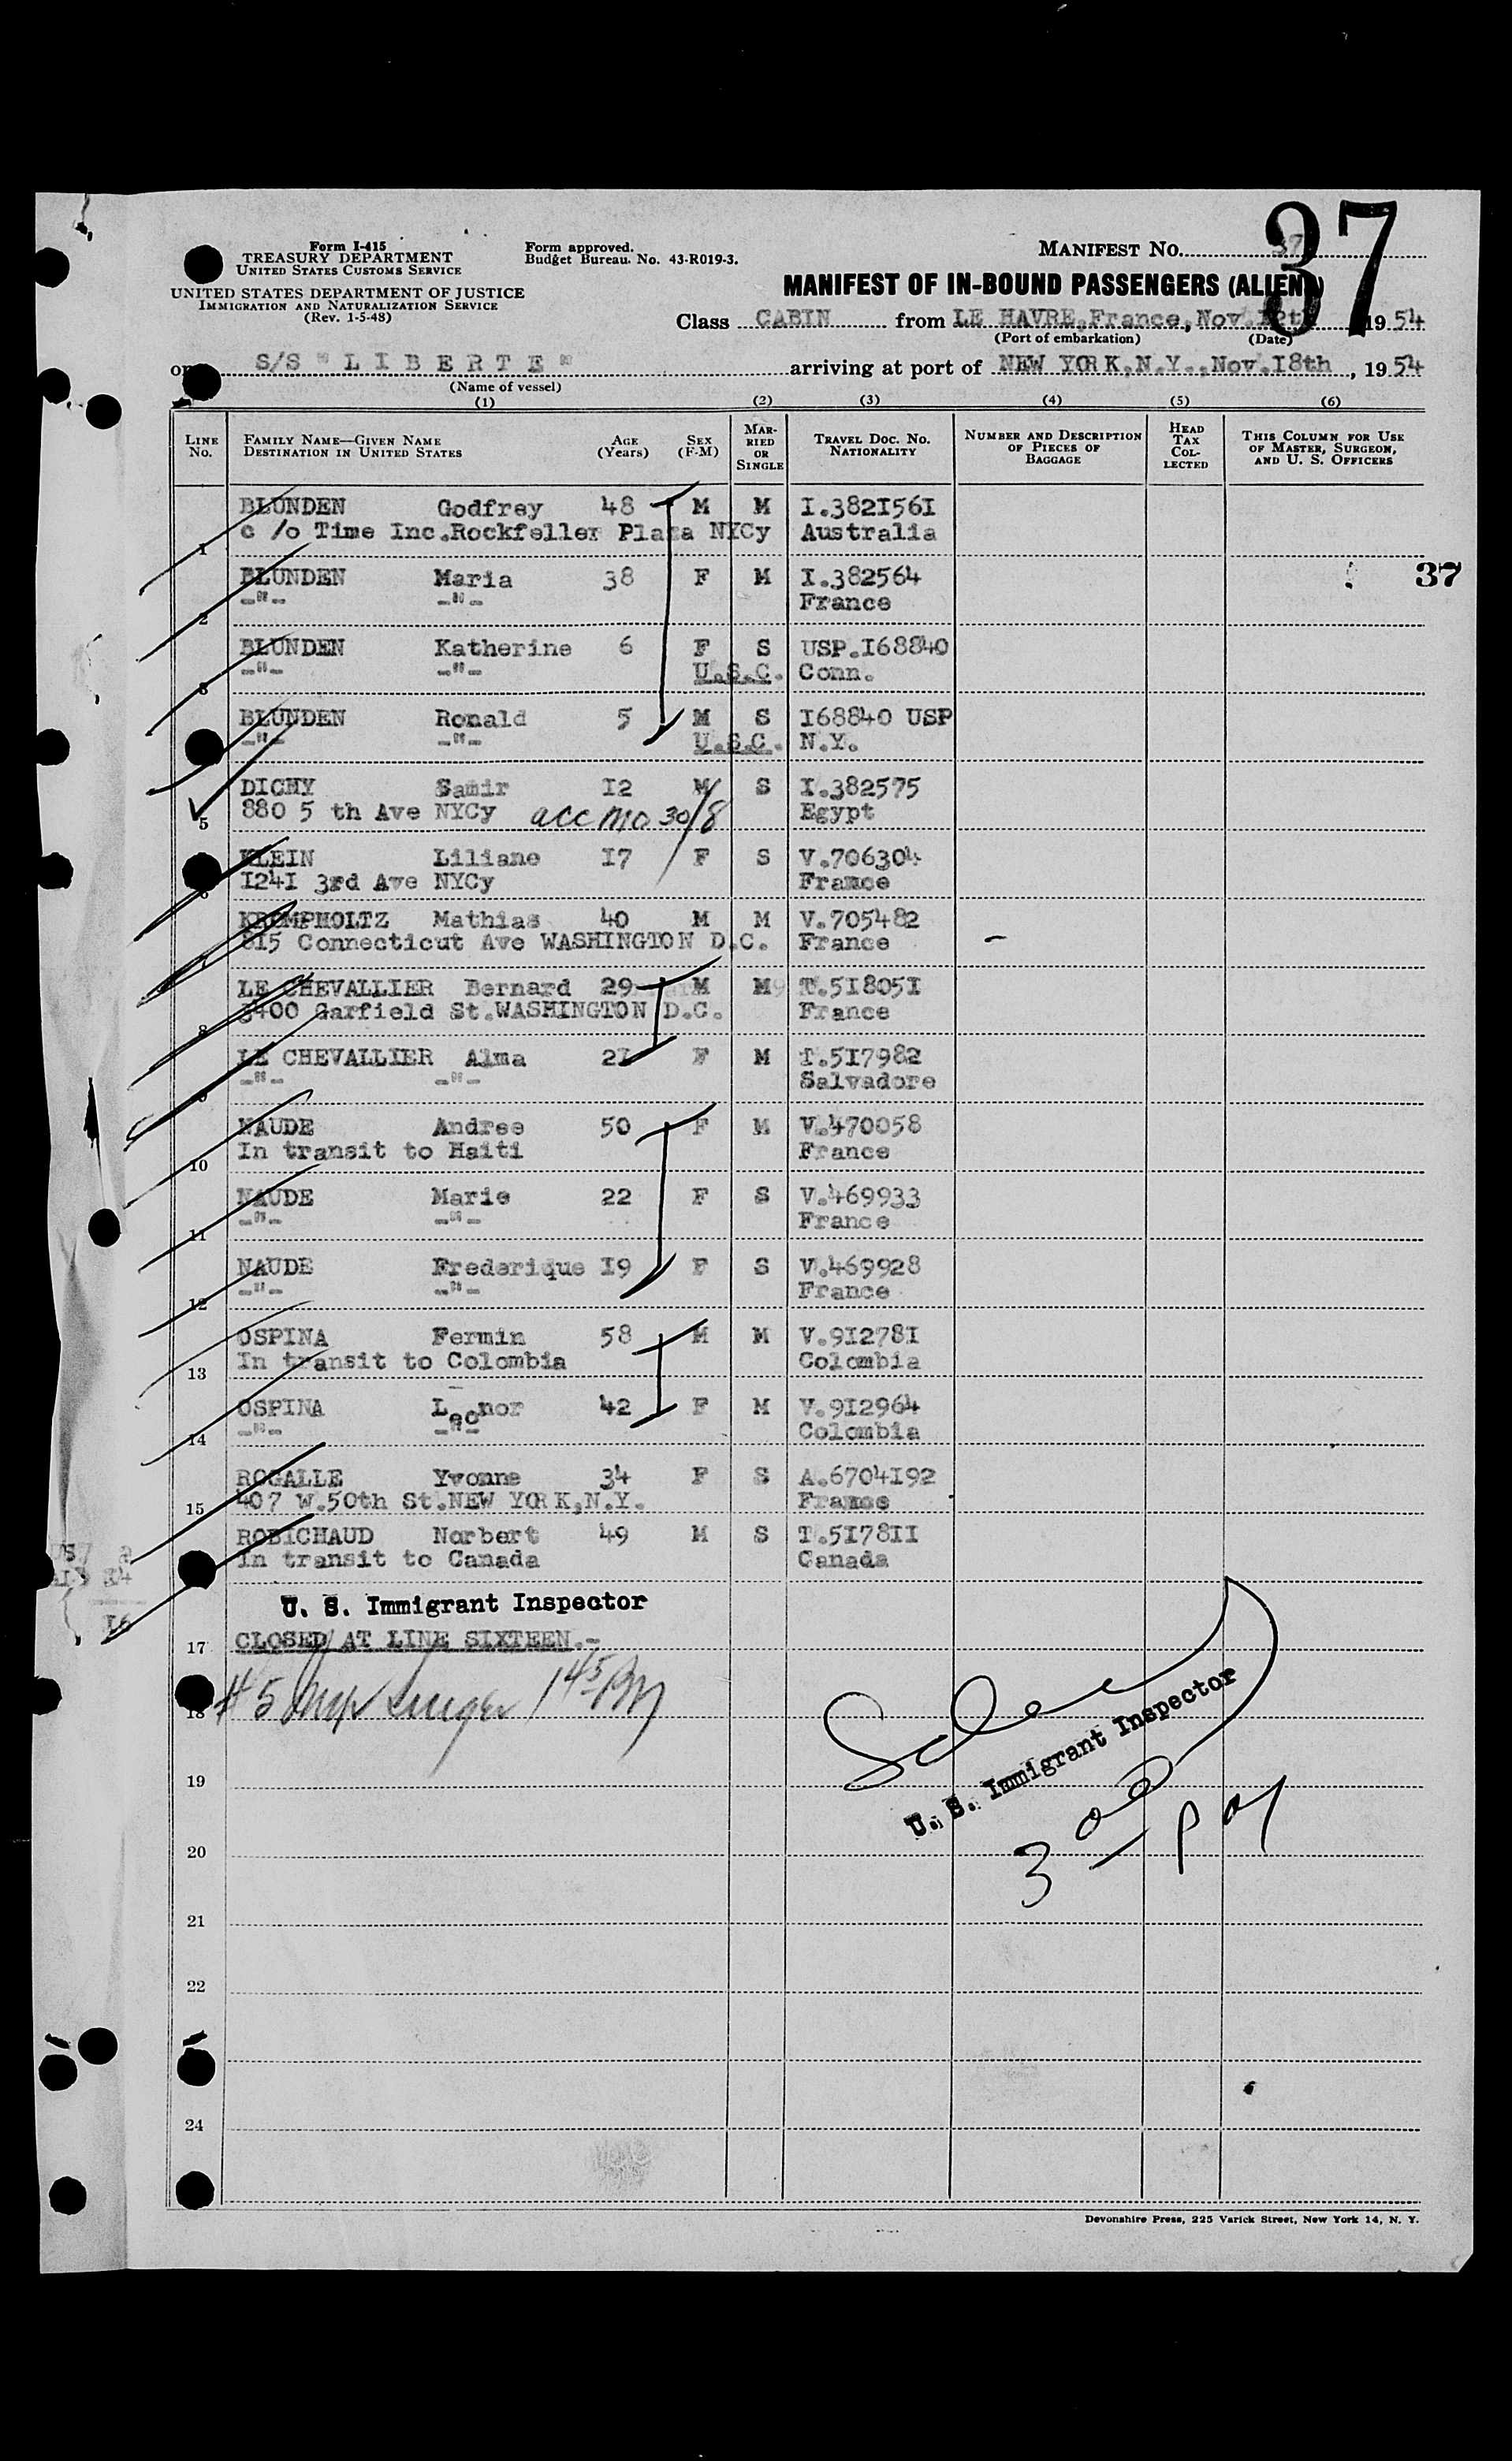 37
Form I-415
TREASURY DEPARTMENT
UNITED STATES CUSTOMS SERVICE
UNITED STATES DEPARTMENT OF JUSTICE
IMMIGRATION AND NATURALIZATION SERVICE
(Rev. 1-5-48)
Form approved.
Budget Bureau. No. 43-R019-3.
MANIFEST No. 37
MANIFEST OF IN-BOUND PASSENGERS (ALIENS)
Class CABIN from LE HAVRE,France,Nov.12th 1954
(Port of embarkation) (Date)
on S/S "LIBERTE" arriving at port of NEW YORK,N.Y.,Nov.18th, 1954
(Name of vessel)
(1) (2) (3) (4) (5) (6)
LINE No. FAMILY NAME—GIVEN NAME DESTINATION IN UNITED STATES AGE (Years) SEX (F-M) MARRIED OR SINGLE TRAVEL DOC. NO. NATIONALITY NUMBER AND DESCRIPTION OF PIECES OF BAGGAGE HEAD TAX COLLECTED THIS COLUMN FOR USE OF MASTER, SURGEON, AND U. S. OFFICERS
BLUNDEN Godfrey 48 M M I.3821561
1 c/o Time Inc.Rockfeller Plaza NYCy Australia
BLUNDEN Maria 38 F M I.382564 37
2 -"- -"- France
BLUNDEN Katherine 6 F S USP.168840
3 -"- -"- U.S.C. Conn.
BLUNDEN Ronald 5 M S 168840 USP
-"- -"- U.S.C. N.Y.
DICHY Samir 12 M S I.382575
5 880 5 th Ave NYCy acc mo 30/8 Egypt
KLEIN Liliane 17 F S V.706304
6 1241 3rd Ave NYCy France
KREMPHOLTZ Mathias 40 M M V.705482
7 815 Connecticut Ave WASHINGTON D.C. France
LE CHEVALLIER Bernard 29 M M T.518051
8 3400 Garfield St.WASHINGTON D.C. France
LE CHEVALLIER Alma 21 F M T.517982
9 -"- -"- Salvadore
NAUDE Andree 50 F M V.470058
10 In transit to Haiti France
NAUDE Marie 22 F S V.469933
11 -"- -"- France
NAUDE Frederique 19 F S V.469928
12 -"- -"- France
OSPINA Fermin 58 M M V.912781
13 In transit to Colombia Colombia
OSPINA Leonor 42 F M V.912964
14 -"- -"- Colombia
ROGALLE Yvonne 34 F S A.6704192
15 407 W.50th St.NEW YORK,N.Y. France
ROBICHAUD Norbert 49 M S T.517811
In transit to Canada Canada
16
U. S. Immigrant Inspector
17 CLOSED AT LINE SIXTEEN.-
18 #5 1 45 PM
U. S. Immigrant Inspector
19
3 00 PM
20
21
22
24
Devonshire Press, 225 Varick Street, New York 14, N. Y.